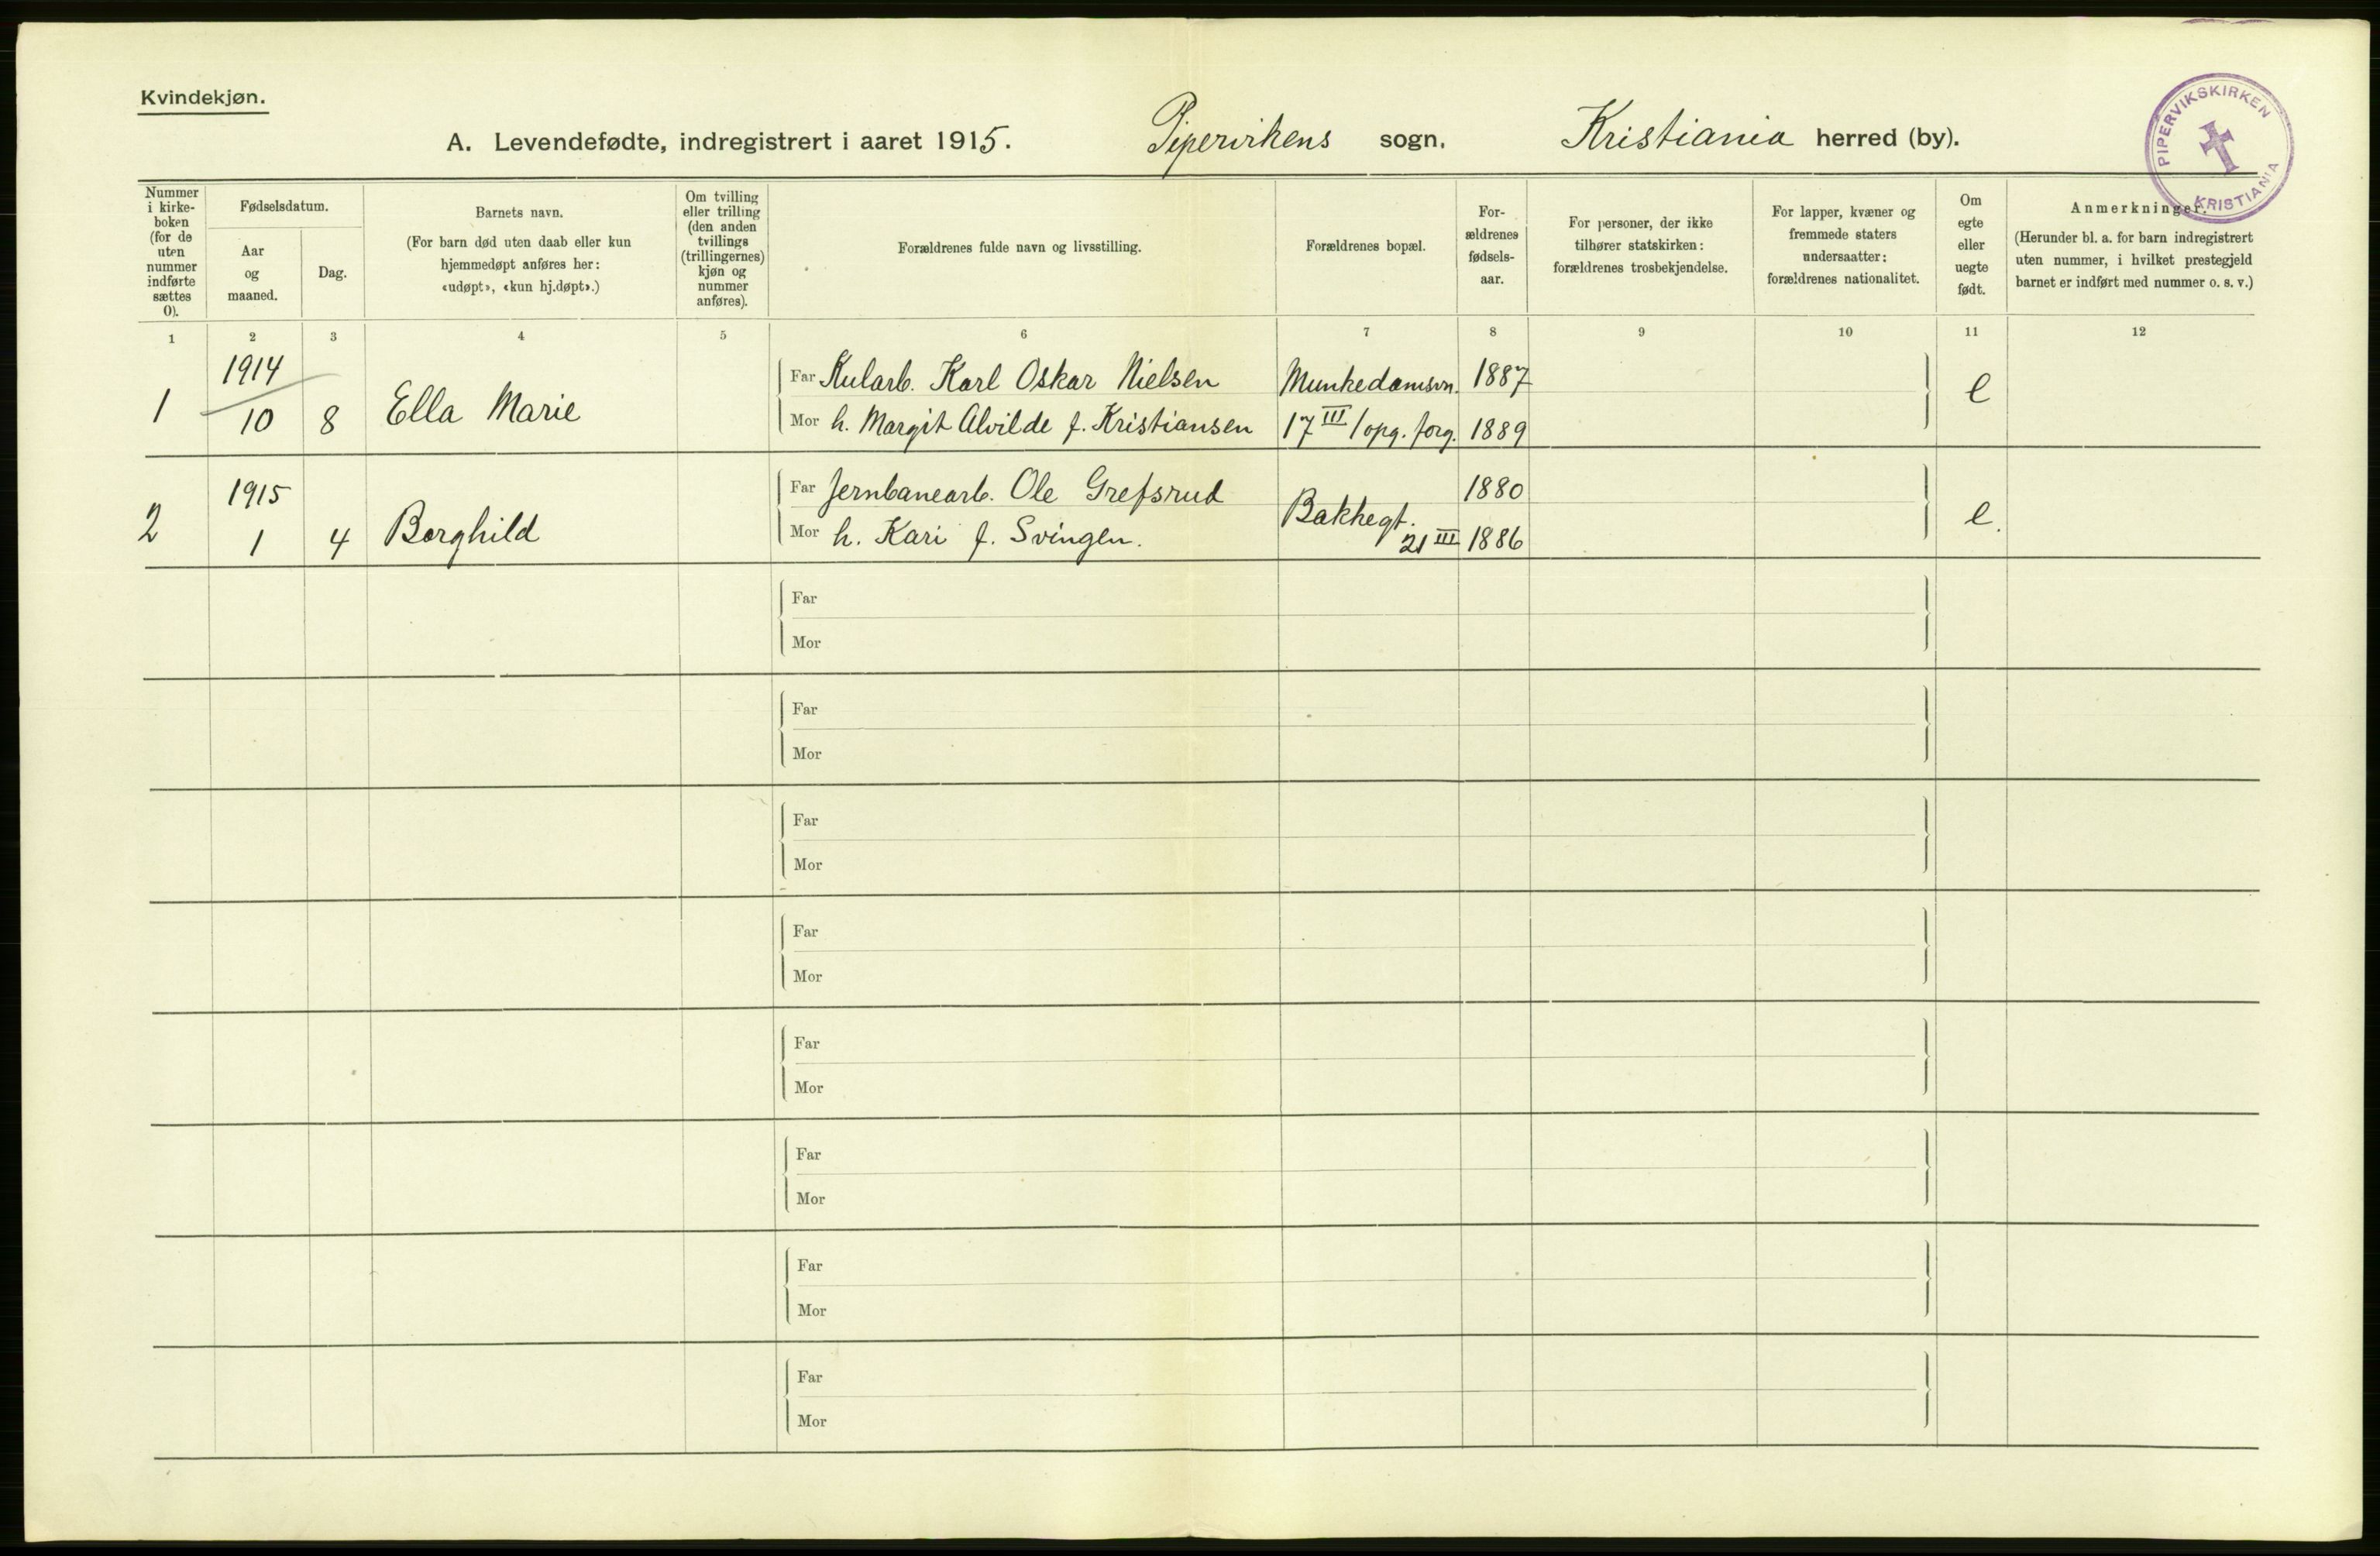 Kvindekjøn.
A. Levendefødte, indregistrert i aaret 1915. Pipervikens sogn. Kristiania herred (by).
PIPERVIKSKIRKEN KRISTIANIA
Nummer i kirke- boken (for de uten nummer indførte sættes 0).
Fødselsdatum.
Aar og maaned.
Dag.
Barnets navn.
(For barn død uten daab eller kun hjemmedøpt anføres her: «udøpt», «kun hj.døpt».)
Om tvilling eller trilling (den anden tvillings (trillingernes) kjøn og nummer anføres).
Forældrenes fulde navn og livsstilling.
Forældrenes bopæl.
For- ældrenes fødsels- aar.
For personer, der ikke tilhører statskirken: forældrenes trosbekjendelse.
For lapper, kvæner og fremmede staters undersaatter: forældrenes nationalitet.
Om egte eller uegte født.
Anmerkninger.
(Herunder bl. a. for barn indregistrert uten nummer, i hvilket prestegjeld barnet er indført med nummer o. s. v.)
1 2 3 4 5 6 7 8 9 10 11 12
1914 Far Kularb. Karl Oskar Nielsen Munkedamsvn. 1887
1 10 8 Ella Marie Mor h. Margit Alvilde f. Kristiansen 17 III / opg. forg. 1889 e
1915 Far Jernbanearb. Ole Grefsrud Bakkegt. 1880
2 1 4 Borghild Mor h. Kari f. Svingen. 21 III 1886 e.
Far
Mor
Far
Mor
Far
Mor
Far
Mor
Far
Mor
Far
Mor
Far
Mor
Far
Mor